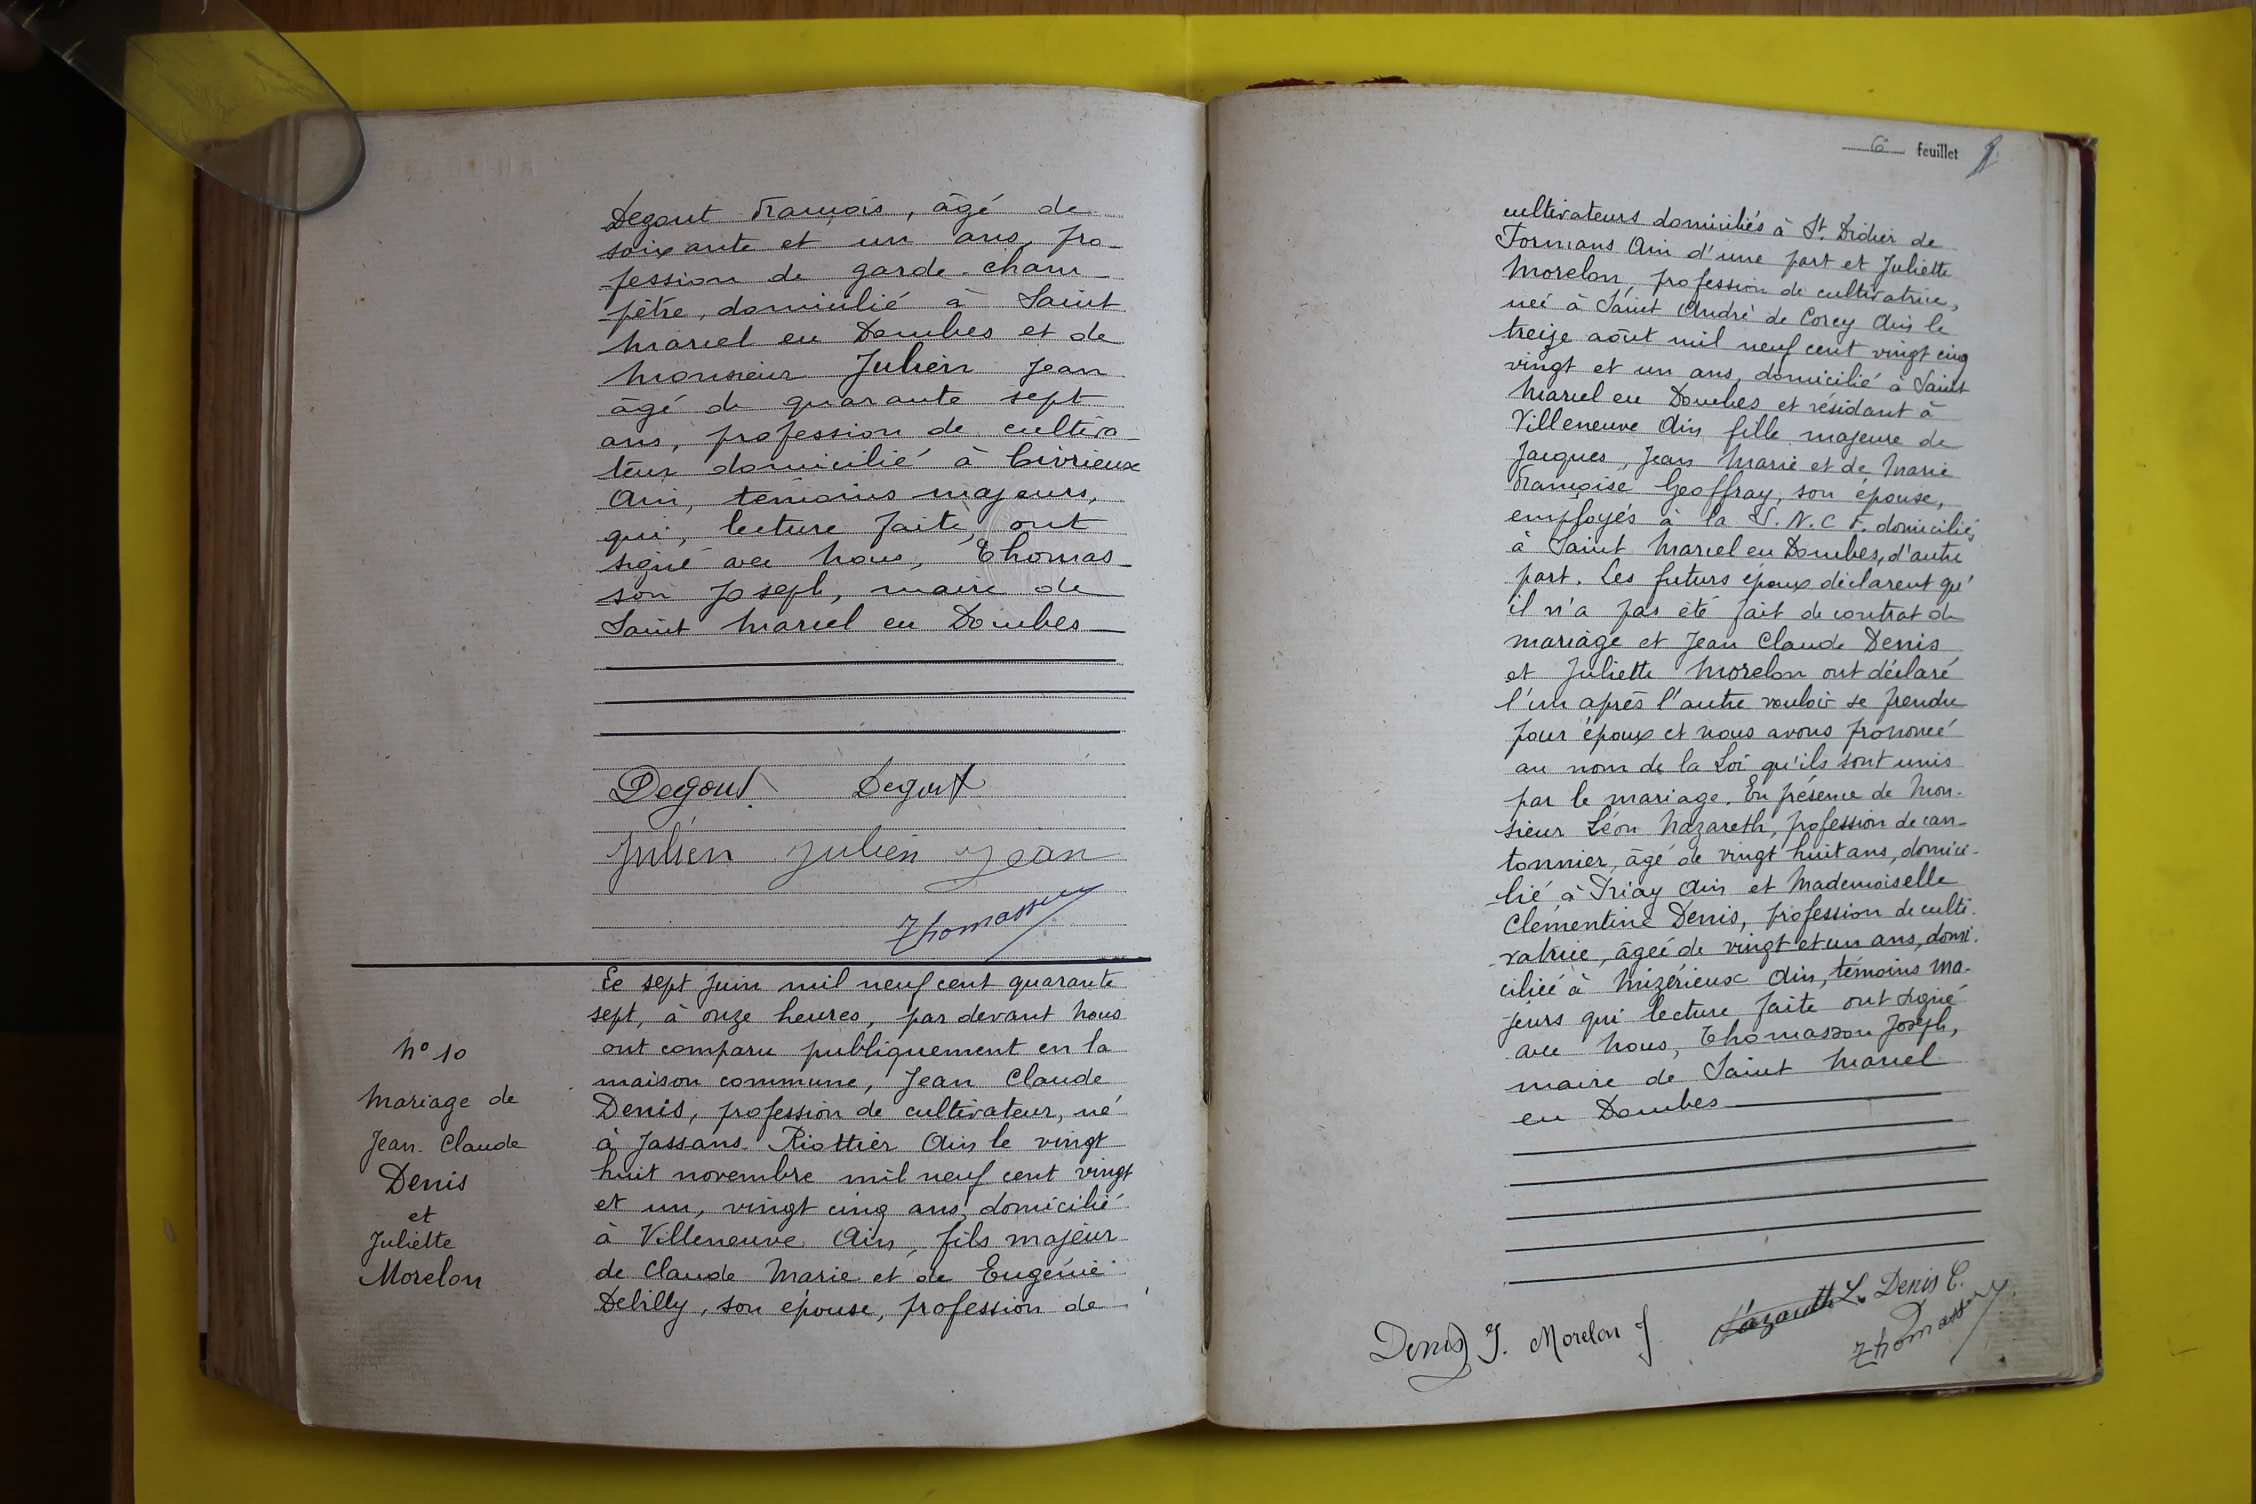 Degout François, âgé de
soixante et un ans, pro-
fession de garde-cham-
pêtre, domicilié à Saint
Marcel en Dombes et de
Monsieur Julien Jean
âgé de quarante sept
ans, profession de cultiva-
teur domicilié à Civrieux
Ain, témoins majeurs,
qui, lecture faite, ont
signé avec Nous, Thomas-
son Joseph, maire de
Saint Marcel en Dombes
Degout Degout
Julien Julien Jean
Thomasson
Le sept juin mil neuf cent quarante
sept, à onze heures, par devant Nous
ont comparu publiquement en la
maison commune, Jean Claude
Denis, profession de cultivateur, né
à Jassans Riottier Ain le vingt
huit novembre mil neuf cent vingt
et un, vingt cinq ans, domicilié
à Villeneuve Ain, fils majeur
de Claude Marie et de Eugénie
Debilly, son épouse, profession de
N° 10
Mariage de
Jean Claude
Denis
et
Juliette
Morelon
6 feuillet
cultivateurs domiciliés à St. Didier de
Formans Ain d'une part et Juliette
Morelon, profession de cultivatrice,
née à Saint André de Corcy Ain le
treize août mil neuf cent vingt cinq
vingt et un ans, domicilié à Saint
Marcel en Dombes et résidant à
Villeneuve Ain fille majeure de
Jacques, Jean Marie et de Marie
Françoise Geoffray, son épouse,
employés à la S.N.C.F. domiciliés
à Saint Marcel en Dombes, d'autre
part. Les futurs époux déclarent qu'
il n'a pas été fait de contrat de
mariage et Jean Claude Denis
et Juliette Morelon ont déclaré
l'un après l'autre vouloir se prendre
pour époux et nous avons prononcé
au nom de la Loi qu'ils sont unis
par le mariage. En présence de Mon-
sieur Léon Nazareth, profession de can-
tonnier, âgé de vingt huit ans, domici-
lié à Priay Ain et Mademoiselle
Clémentine Denis, profession de culti-
vatrice, âgée de vingt et un ans, domi-
ciliée à Mizérieux Ain, témoins ma-
jeurs qui lecture faite ont signé
avec Nous, Thomasson Joseph,
maire de Saint Marcel
en Dombes
Denis J. Morelon J. Nazareth L. Denis C.
Thomasson